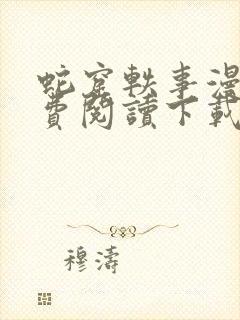 蛇窟軼事漫
費閱讀下載
穆濤